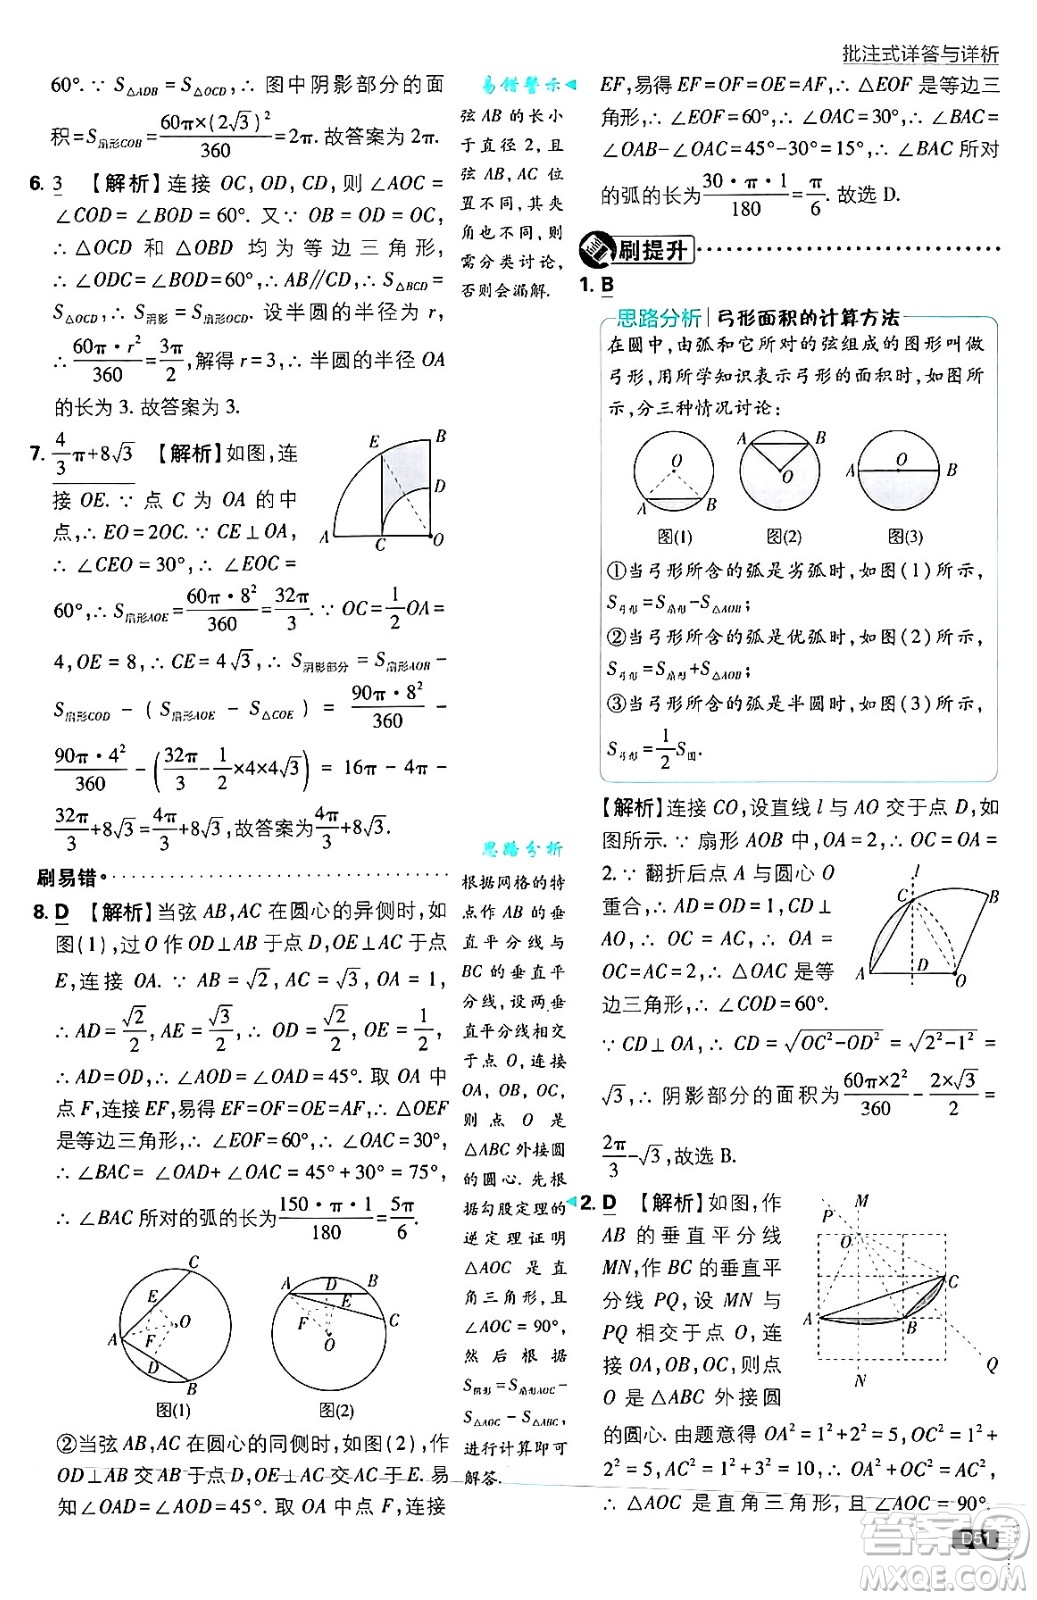 批注式详答与详析
60°.∵ S△ADB=S△OCD,∴ 图中阴影部分的面
积=S扇形COB=60π×(2√3)²/360=2π.故答案为2π.
6. 3 【解析】连接 OC,OD,CD,则∠AOC=
∠COD=∠BOD=60°.又∵ OB=OD=OC,
∴△OCD 和△OBD 均为等边三角形,
∴∠ODC=∠BOD=60°,∴AB∥CD,∴S△BCD=
S△OCD,∴S阴影=S扇形OCD.设半圆的半径为 r,
∴60π·r²/360=3π/2,解得 r=3,∴半圆的半径 OA
的长为 3.故答案为 3.
7. 4/3π+8√3 【解析】如图,连
接 OE.∵ 点 C 为 OA 的中
点,∴EO=2OC.∵CE⊥OA,
∴∠CEO=30°,∴∠EOC=
60°,∴S扇形AOE=60π·8²/360=32π/3.∵OC=1/2OA=
4,OE=8,∴CE=4√3,∴S阴影部分=S扇形AOB−
S扇形COD−(S扇形AOE−S△COE)=90π·8²/360−
90π·4²/360−(32π/3−1/2×4×4√3)=16π−4π−
32π/3+8√3=4π/3+8√3,故答案为4π/3+8√3.
E B D A C O
刷易错
8. D 【解析】①当弦 AB,AC 在圆心的异侧时,如
图(1),过 O 作 OD⊥AB 于点 D,OE⊥AC 于点
E,连接 OA.∵AB=√2,AC=√3,OA=1,
∴AD=√2/2,AE=√3/2,∴OD=√2/2,OE=1/2,
∴AD=OD,∴∠AOD=∠OAD=45°.取 OA 中
点 F,连接 EF,易得 EF=OF=OE=AF,∴△OEF
是等边三角形,∴∠EOF=60°,∴∠OAC=30°,
∴∠BAC=∠OAD+∠OAC=45°+30°=75°,
∴∠BAC 所对的弧的长为150·π·1/180=5π/6.
C E O A F D B
图(1)
A D B E F C O
图(2)
②当弦 AB,AC 在圆心的同侧时,如图(2),作
OD⊥AB 交 AB 于点 D,OE⊥AC 交 AC 于 E.易
知∠OAD=∠AOD=45°.取 OA 中点 F,连接
易错警示
弦 AB 的长小
于直径 2,且
弦 AB,AC 位
置不同,其夹
角也不同,则
需分类讨论,
否则会漏解.
思路分析
根据网格的特
点作 AB 的垂
直平分线与
BC 的垂直平
分线,设两垂
直平分线相交
于点 O,连接
OA,OB,OC,
则点 O 是
△ABC 外接圆
的圆心.先根
据勾股定理的
逆定理证明
△AOC 是直
角三角形,即
∠AOC=90°,
然后根据
S阴影=S扇形AOC−
S△AOC−S△ABC,
进行计算即可
解答.
EF,易得 EF=OF=OE=AF,∴△EOF 是等边三
角形,∴∠EOF=60°,∴∠OAC=30°,∴∠BAC=
∠OAB−∠OAC=45°−30°=15°,∴∠BAC 所对
的弧的长为30·π·1/180=π/6.故选 D.
刷提升
1. B
思路分析 | 弓形面积的计算方法
在圆中,由弧和它所对的弦组成的图形叫做
弓形,用所学知识表示弓形的面积时,如图所
示,分三种情况讨论:
O A B
图(1)
A B O
图(2)
A O B
图(3)
①当弓形所含的弧是劣弧时,如图(1)所示,
S弓形=S扇形−S△AOB;
②当弓形所含的弧是优弧时,如图(2)所示,
S弓形=S扇形+S△AOB;
③当弓形所含的弧是半圆时,如图(3)所示,
S弓形=1/2S圆.
【解析】连接 CO,设直线 l 与 AO 交于点 D,如
图所示.∵ 扇形 AOB 中,OA=2,∴OC=OA=
2.∵ 翻折后点 A 与圆心 O
重合,∴AD=OD=1,CD⊥
AO,∴OC=AC,∴OA=
OC=AC=2,∴△OAC 是等
边三角形,∴∠COD=60°.
l C B A D O
∵CD⊥OA,∴CD=√(OC²−OD²)=√(2²−1²)=
√3,∴阴影部分的面积为60π×2²/360−2×√3/2=
2π/3−√3,故选 B.
2. D 【解析】如图,作
AB 的垂直平分线
MN,作 BC 的垂直平
分线 PQ,设 MN 与
PQ 相交于点 O,连
接 OA,OB,OC,则点
O 是△ABC 外接圆
M P O C A B N Q
的圆心.由题意得 OA²=1²+2²=5,OC²=1²+
2²=5,AC²=1²+3²=10,∴OA²+OC²=AC²,
∴△AOC 是直角三角形,且∠AOC=90°.
D51
答案圈
MXQE.COM